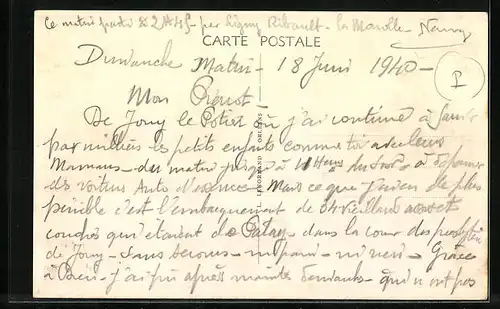 Ce matin parti à 2H45 - par Ligny Ribault - la Marolle - Neung
CARTE POSTALE
Dimanche Matin - 18 Juin 1940 -
I
Mon
De Jouy le Potier où j'ai continué à
par milliers les petits enfants comme toi avec leurs
Mamans - du matin jusqu'à 11 Heures du soir à
des voitures Autos d'essence - Mais ce que j'ai eu de plus
pénible c'est l'embarquement de 64 vieillards assis et
couchés qui étaient de Patay - dans la cour du
de Jouy - sans secours - ni pain - ni rien - Grâce
à Dieu - j'ai pu après maintes - qui n'ont pas
L. LENORMAND - ORLÉANS